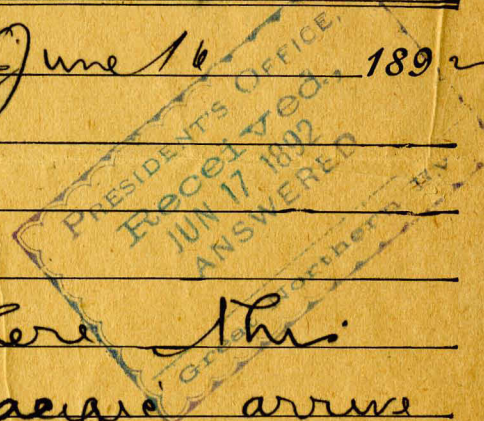 June 16 1892
PRESIDENT'S OFFICE,
Received,
JUN 17 1892
ANSWERED
Great Northern Ry
ere this
acific arrive